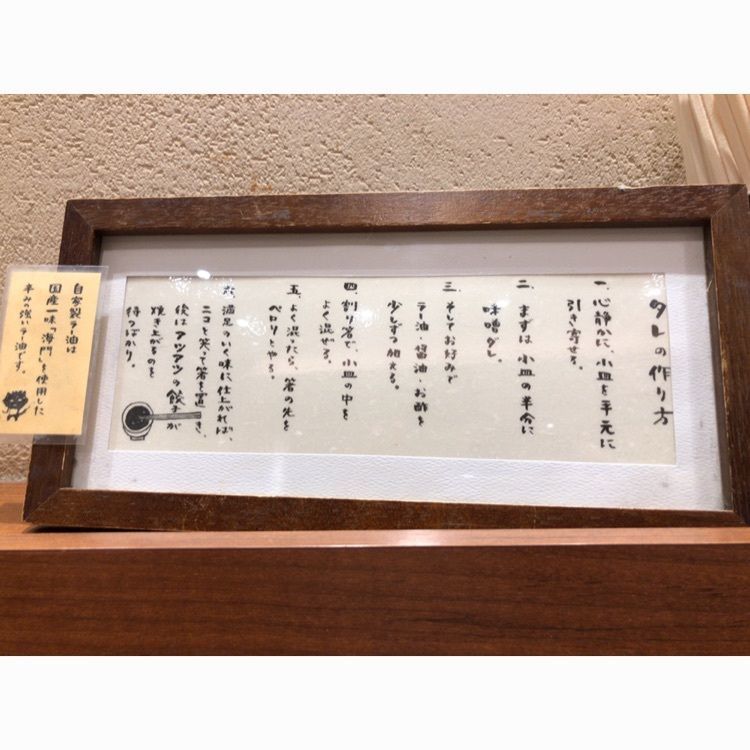 タレの作り方
一、心静かに、小皿を手元に
引き寄せる。
二、まずは小皿の半分に
味噌ダレ。
三、そしてお好みで
ラー油・醤油・お酢を
少しずつ加える。
四、割り箸で、小皿の中を
よく混ぜる。
五、よく混ったら、箸の先を
ペロリとやる。
六、満足のいく味に仕上がれば、
ニコと笑って箸を置き、
後はアツアツの餃子が
焼き上がるのを
待つばかり。
自家製ラー油は
国産一味「海門」を使用した
辛みの強いラー油です。